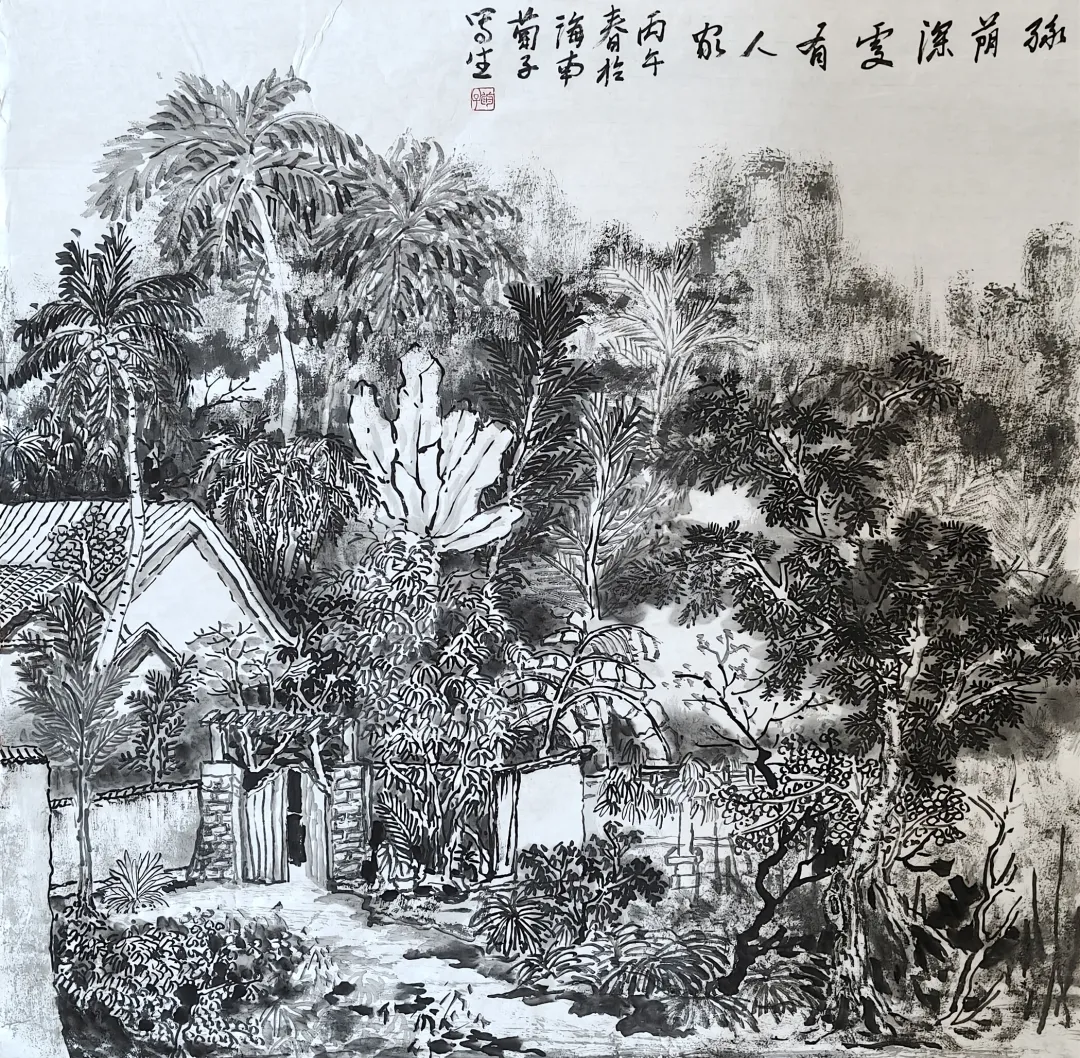 绿荫深處有人家
丙午
春於
海南
菊子
写生